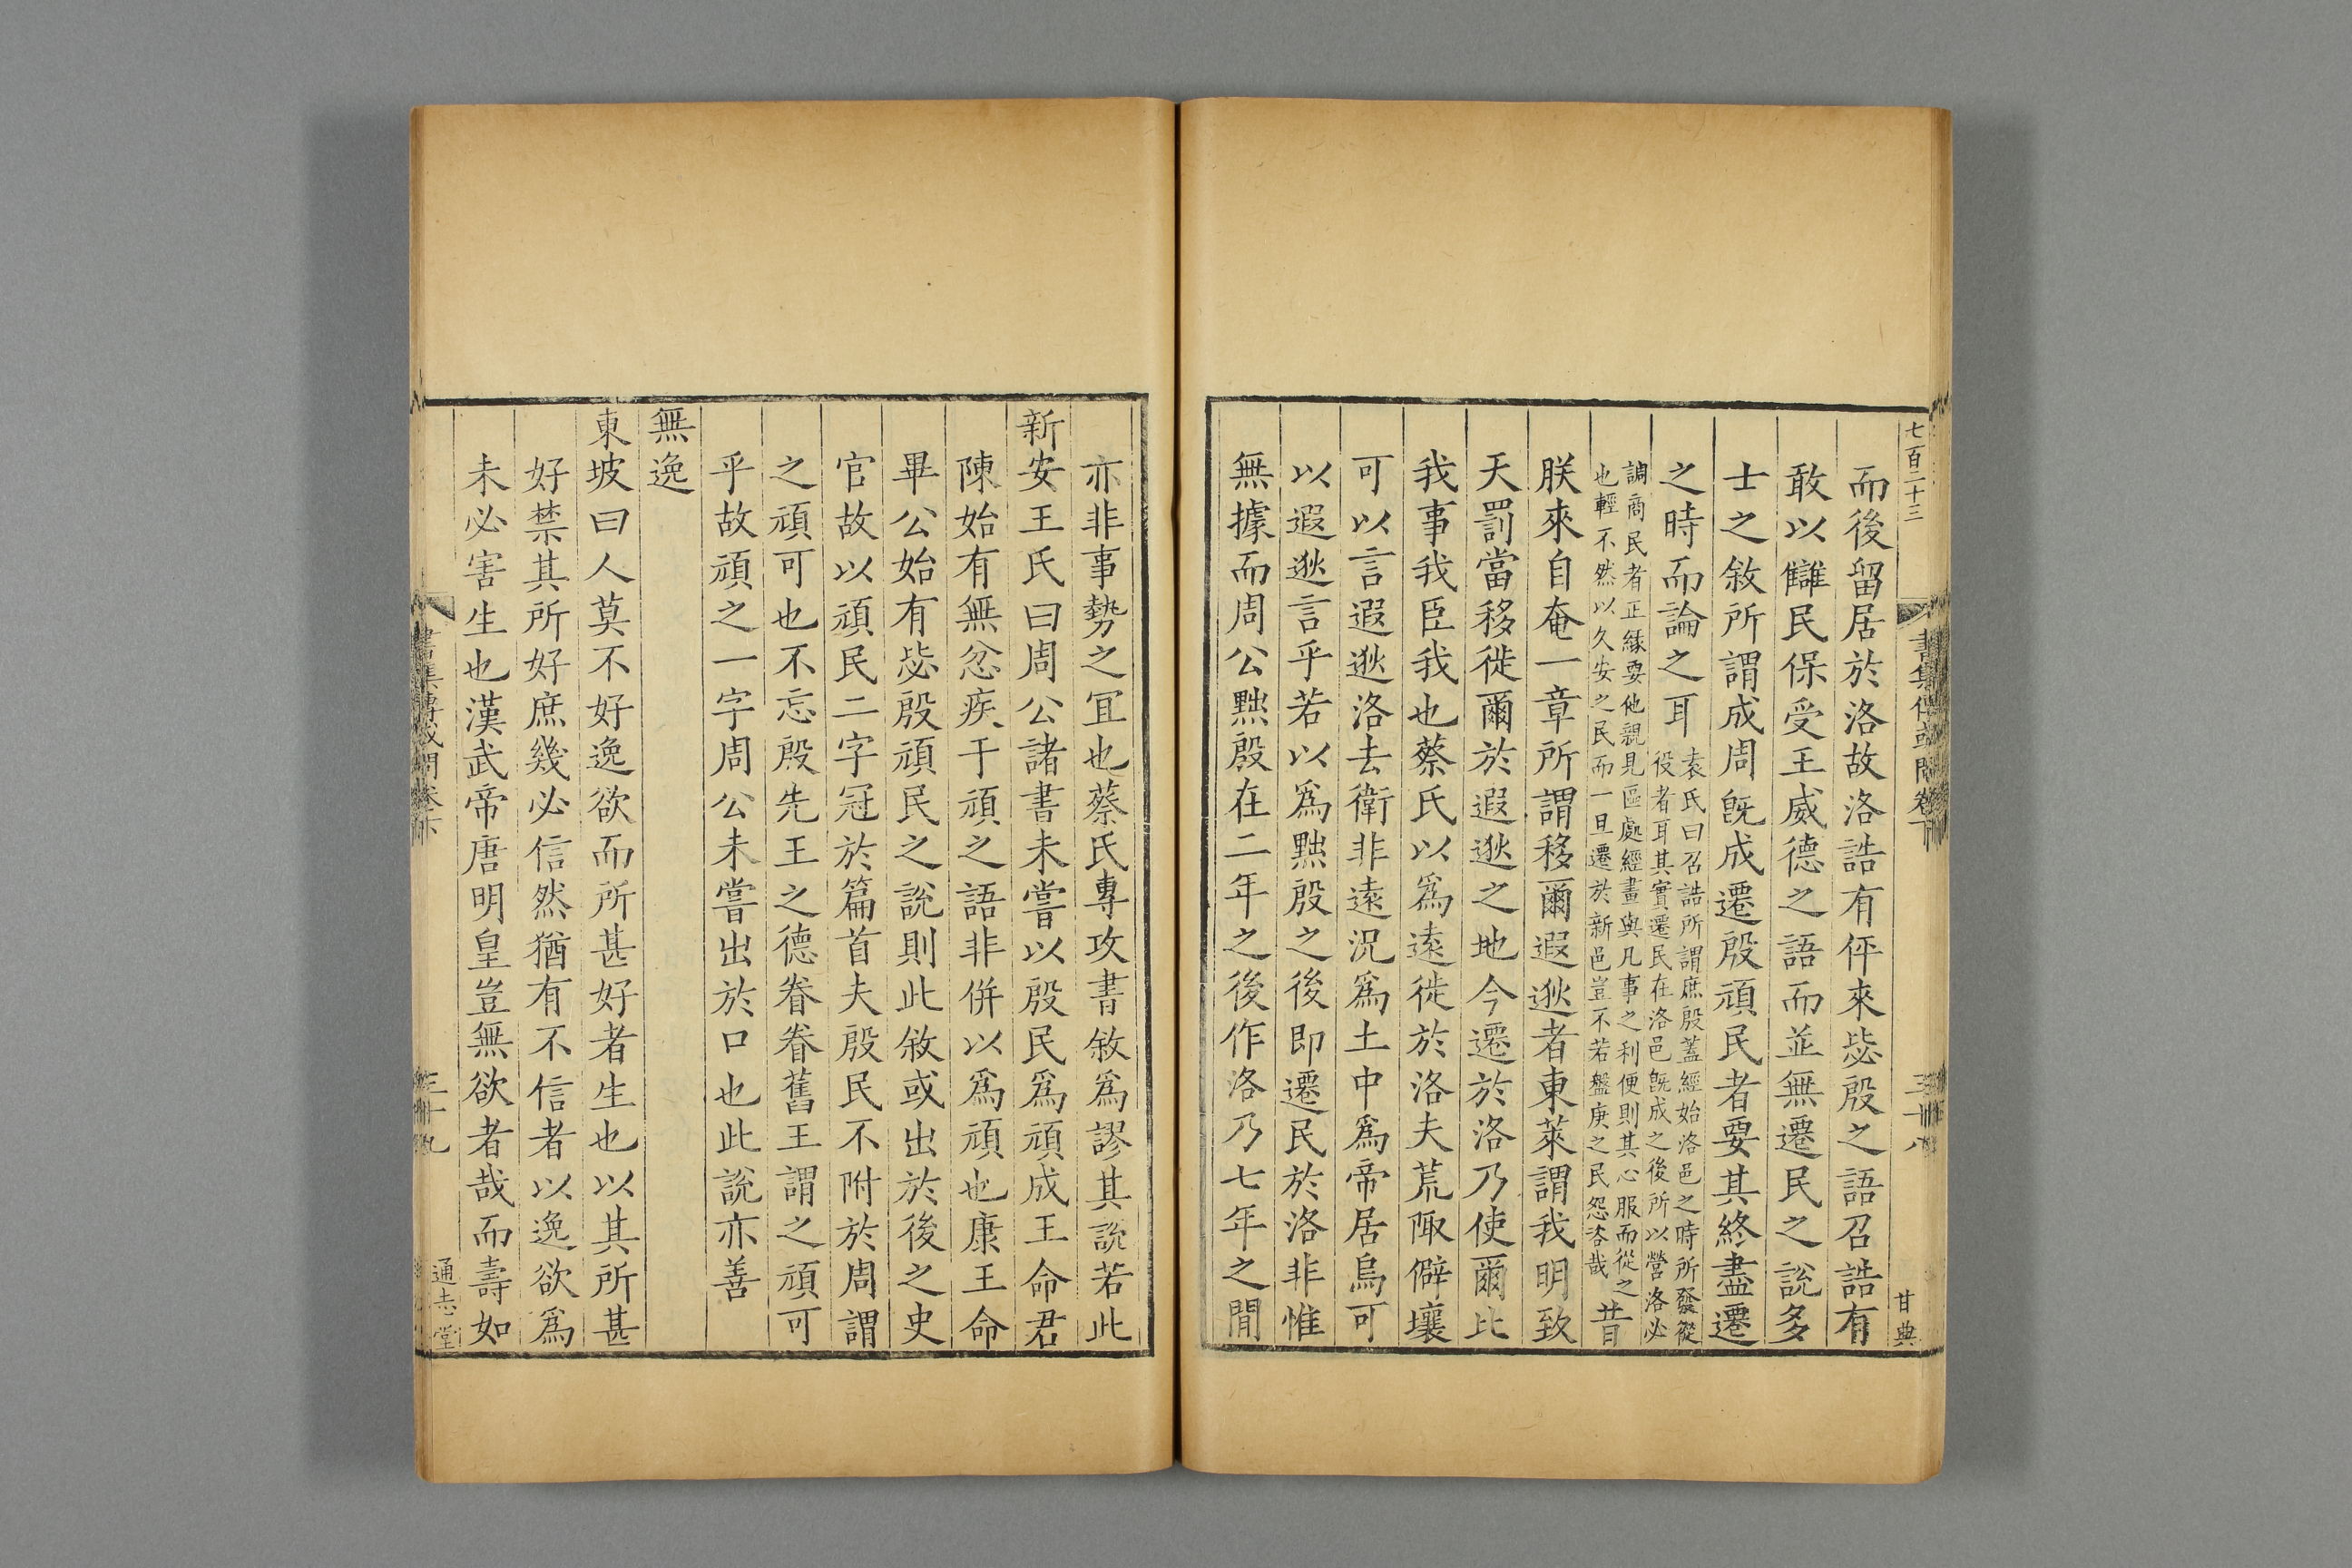 七百二十三
書集傳或問卷下
三十八
甘典
而後留居於洛故洛誥有伻來毖殷之語召誥有
敢以讎民保受王威德之語而並無遷民之說多
士之敘所謂成周旣成遷殷頑民者要其終盡遷
之時而論之耳
袁氏曰召誥所謂庶殷蓋經始洛邑之時所發從
役者耳其實遷民在洛邑旣成之後所以營洛必
調商民者正緣要他親見區處經畫與凡事之利便則其心服而從之
也輕不然以久安之民而一旦遷於新邑豈不若盤庚之民怨咨哉
昔
朕來自奄一章所謂移爾遐逖者東萊謂我明致
天罰當移徙爾於遐逖之地今遷於洛乃使爾比
我事我臣我也蔡氏以爲遠徙於洛夫荒陬僻壤
可以言遐逖洛去衛非遠況爲土中爲帝居烏可
以遐逖言乎若以爲黜殷之後即遷民於洛非惟
無據而周公黜殷在二年之後作洛乃七年之閒
亦非事勢之冝也蔡氏專攻書敘爲謬其說若此
新安王氏曰周公諸書未嘗以殷民爲頑成王命君
陳始有無忿疾于頑之語非併以爲頑也康王命
畢公始有毖殷頑民之說則此敘或出於後之史
官故以頑民二字冠於篇首夫殷民不附於周謂
之頑可也不忘殷先王之德眷眷舊王謂之頑可
乎故頑之一字周公未嘗出於口也此說亦善
無逸
東坡曰人莫不好逸欲而所甚好者生也以其所甚
好禁其所好庶幾必信然猶有不信者以逸欲爲
未必害生也漢武帝唐明皇豈無欲者哉而壽如
書集傳或問卷下
三十九
通志堂